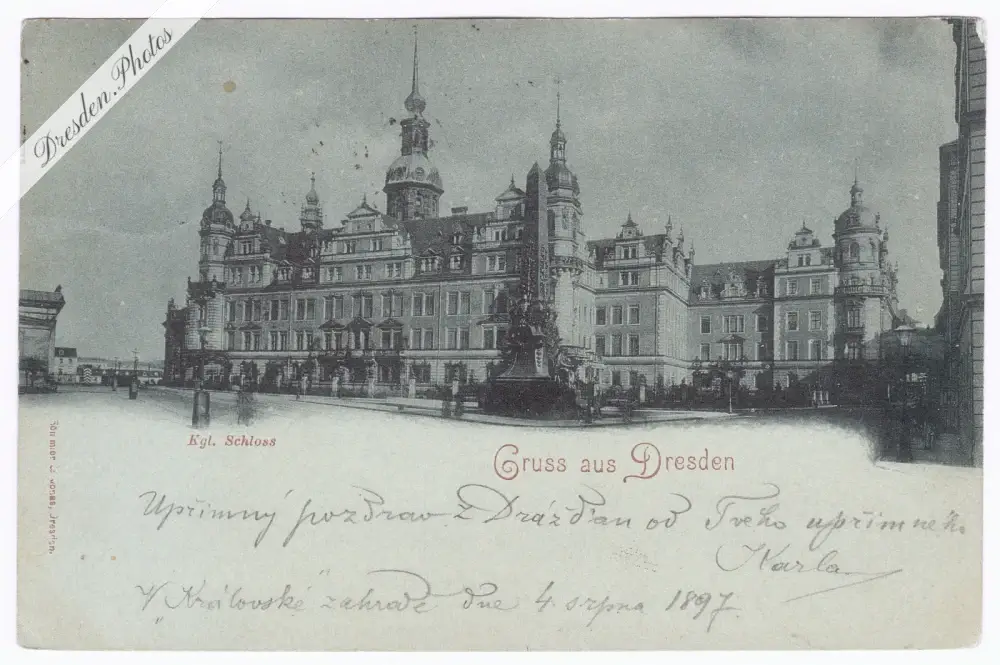 Dresden.Photos
Kgl. Schloss
Gruss aus Dresden
Upřímný pozdrav z Drážďan od Tvého upřímného
Karla
V „Královské zahradě“ dne 4 srpna 1897.
Jonas, Dresden.